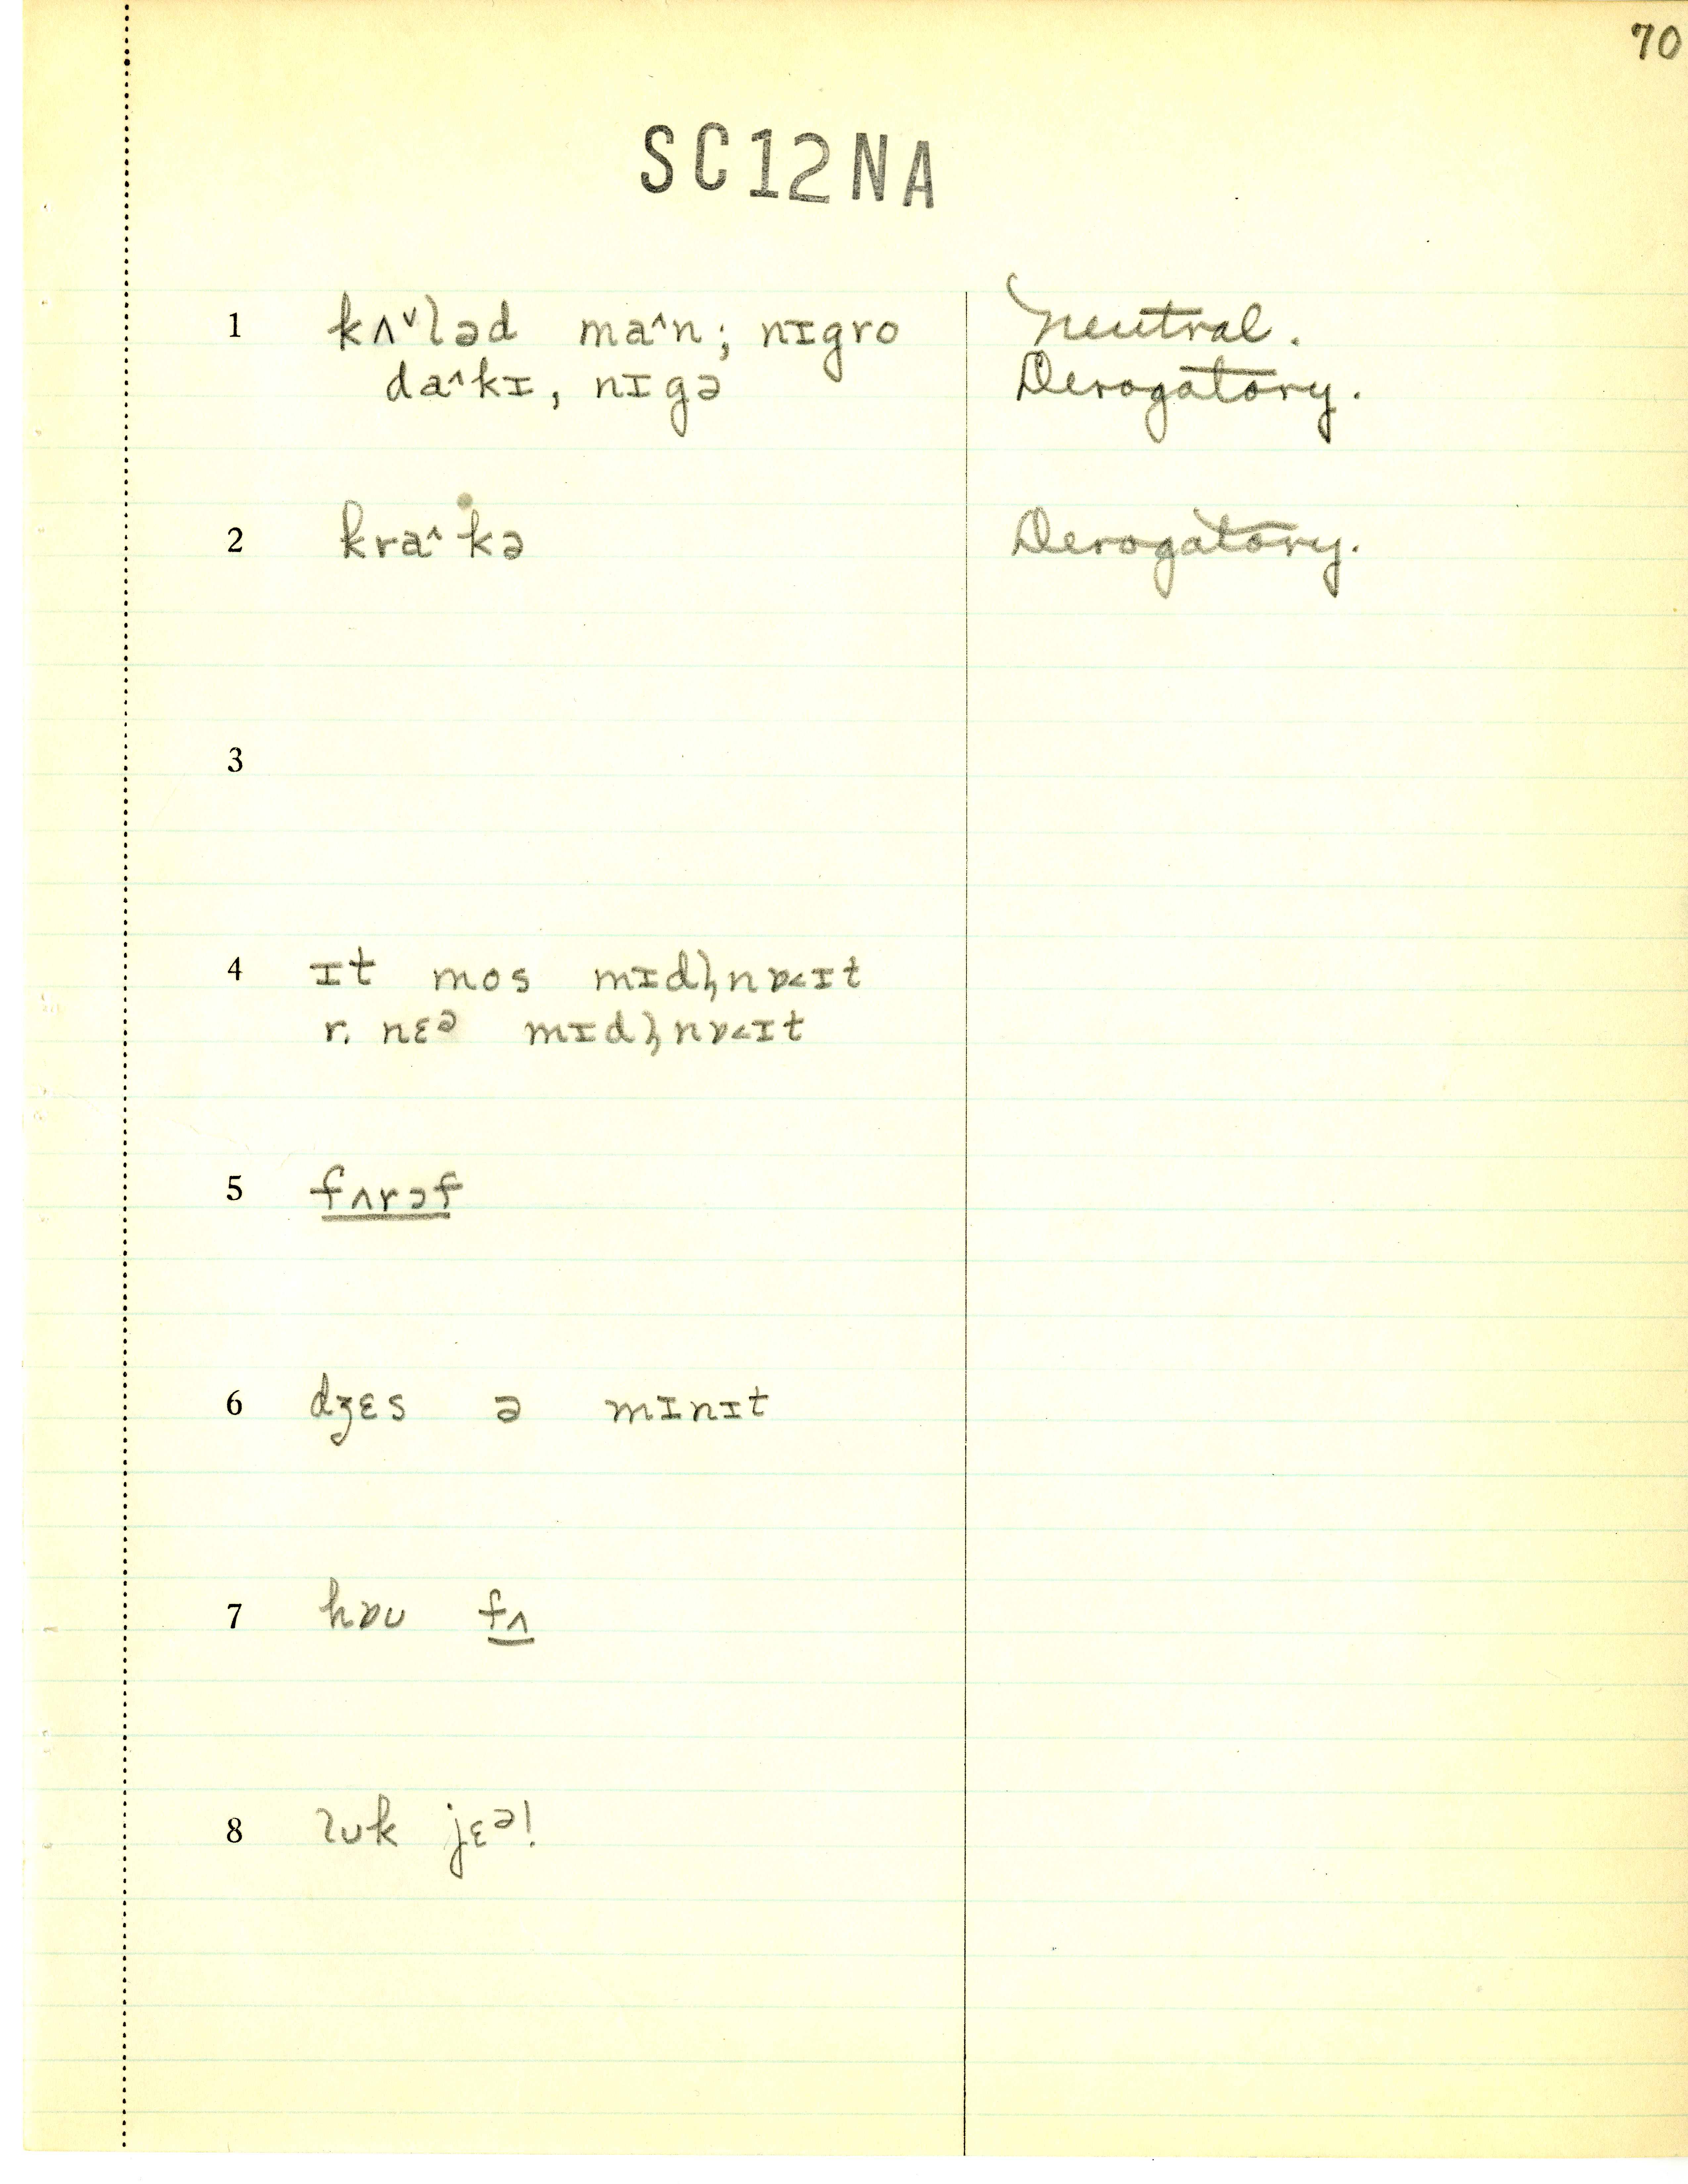 70
SC12NA
1 kʌ˅ləd ma^n; nɪgro Neutral.
da^kɪ, nɪgə Derogatory.
2 kra^kə Derogatory.
3
4 ɪt mos mɪdl̩nɒ<ɪt
r. nɛᵊ mɪdl̩nɒ<ɪt
5 fʌrəf
6 dʒɛs ə mɪnɪt
7 hɒu fʌ
8 luk jɛᵊ!